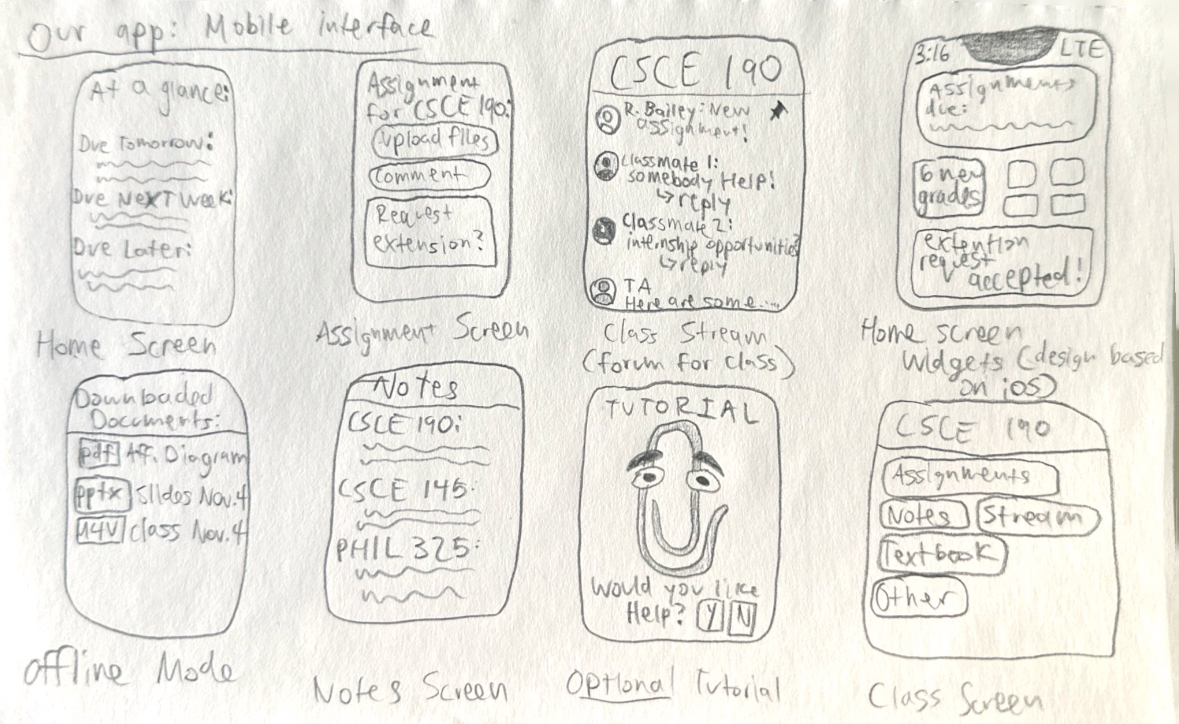 Our app: Mobile interface
At a glance:
Due Tomorrow:
Due Next Week:
Due Later:
Home Screen
Assignment
for CSCE 190:
Upload files
Comment
Request
extension?
Assignment Screen
CSCE 190
R. Bailey: New
assignment!
Classmate 1:
somebody Help!
↳reply
Classmate 2:
internship opportunities?
↳reply
TA
Here are some....
Class Stream
(forum for class)
3:16 LTE
Assignments
due:
6 new
grades
extention
request
accepted!
Home screen
Widgets (design based
on ios)
Downloaded
Documents:
pdf Aff. Diagram
pptx Slides Nov.4
M4V class Nov.4
Offline Mode
Notes
CSCE 190:
CSCE 145:
PHIL 325:
Notes Screen
TUTORIAL
Would you like
Help? Y N
Optional Tutorial
CSCE 190
Assignments
Notes Stream
Textbook
Other
Class Screen